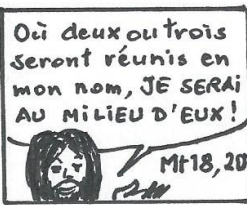 Où deux ou trois
seront réunis en
mon nom, JE SERAi
AU MiLiEU D'EUX!
Mt 18, 20